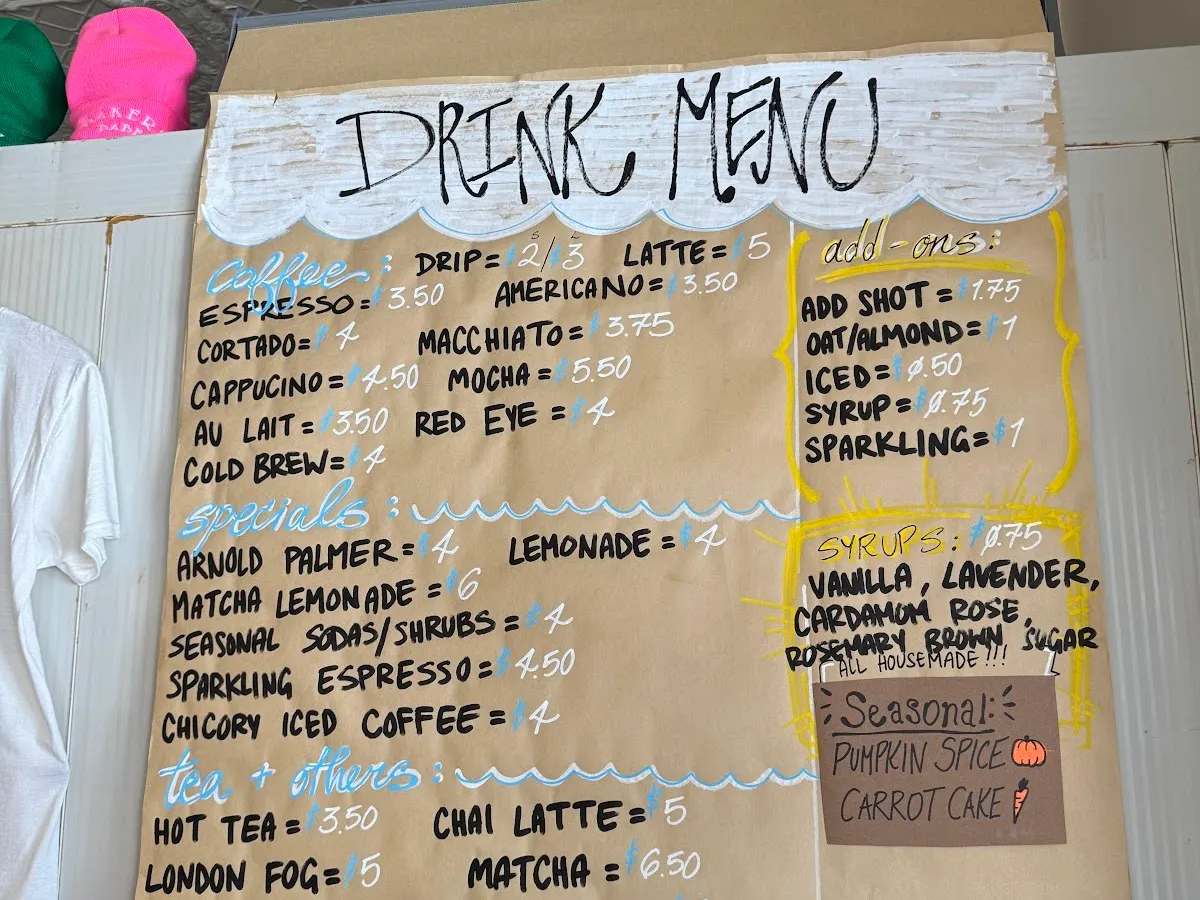 BAKER
BABE
DRINK MENU
coffee: DRIP = $2/$3 LATTE = $5
S L
ESPRESSO = $3.50 AMERICANO = $3.50
CORTADO = $4 MACCHIATO = $3.75
CAPPUCINO = $4.50 MOCHA = $5.50
AU LAIT = $3.50 RED EYE = $4
COLD BREW = $4
specials:
ARNOLD PALMER = $4 LEMONADE = $4
MATCHA LEMONADE = $6
SEASONAL SODAS/SHRUBS = $4
SPARKLING ESPRESSO = $4.50
CHICORY ICED COFFEE = $4
tea + others:
HOT TEA = $3.50 CHAI LATTE = $5
LONDON FOG = $5 MATCHA = $6.50
add-ons:
ADD SHOT = $1.75
OAT/ALMOND = $1
ICED = $0.50
SYRUP = $0.75
SPARKLING = $1
SYRUPS: $0.75
VANILLA, LAVENDER,
CARDAMOM ROSE,
ROSEMARY BROWN SUGAR
ALL HOUSEMADE!!!
Seasonal:
PUMPKIN SPICE
CARROT CAKE